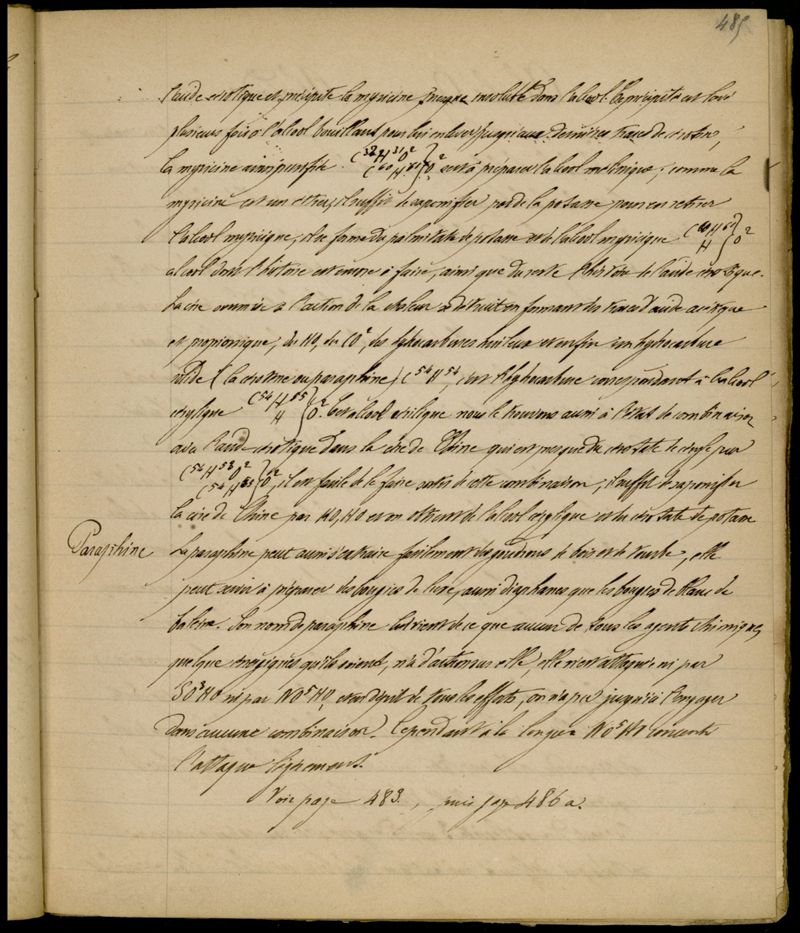 485
l'acide cérotique et précipite la myricine presque insoluble dans l'alcool. Le précipité est lavé
plusieurs fois à l'alcool bouillant pour lui enlever jusqu'aux dernières traces de cérotine,
la myricine ainsi purifiée C32H31O2 C60H61 } O2 sert à préparer l'alcool mélissique ; comme la
myricine est un éther, il suffit de saponifier par de la potasse pour en retirer
l'alcool myricique, il se forme du palmitate de potasse et de l'alcool myricique C60H61 H } O2
alcool dont l'histoire est encore à faire, ainsi que du reste l'histoire de l'acide cérotique.
La cire soumise à l'action de la chaleur se détruit en formant des traces d'acide acétique
et propionique, de HO, de CO2, des hydrocarbures huileux et enfin un hydrocarbure
solide (la cérotène ou paraphine) C54H54, c'est l'hydrocarbure correspondant à l'alcool
cérylique C54H55 H } O2. Cet alcool cérylique nous le trouvons aussi à l'état de combinaison
avec l'acide cérotique dans la cire de Chine qui est presque du cérotate de céryle pur
C54H53O2 C54H55 } O2, il est facile de le faire sortir de cette combinaison ; il suffit de saponifier
la cire de Chine par KO,HO et on obtient de l'alcool cérylique et du cérotate de potasse
Paraphine
La paraphine peut aussi s'extraire facilement des goudrons de bois et de tourbe, elle
peut servir à préparer des bougies de luxe, aussi diaphanes que les bougies de blanc de
baleine. Son nom de paraphine lui vient de ce que aucun de tous les agents chimiques,
quelque énergiques qu'ils soient, n'a d'action sur elle, elle n'est attaquée ni par
SO3HO ni par NO5HO, et en dépit de tous les efforts, on n'a pu jusqu'ici l'engager
dans aucune combinaison. Cependant à la longue NO5HO concentré
l'attaque légèrement.
Voir page 483, puis page 486 a.